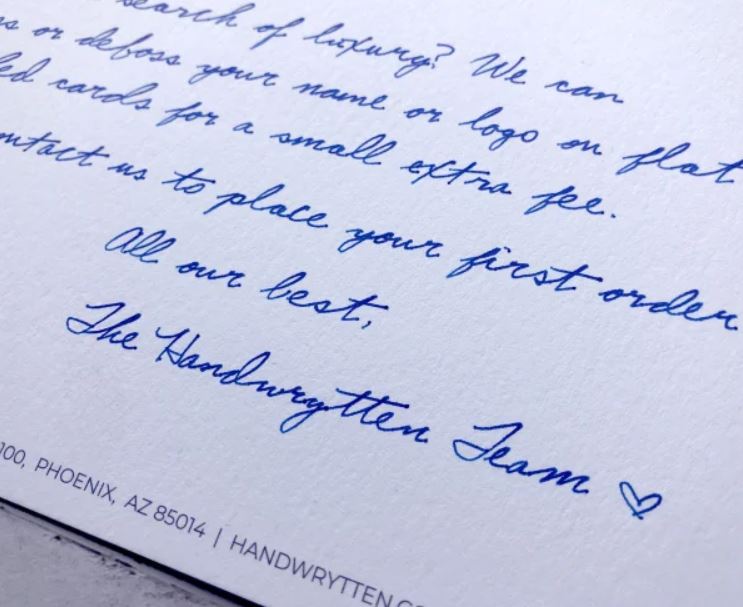 search of luxury? We can
or deboss your name or logo on flat
cards for a small extra fee.
us to place your first order
All our best,
The Handwrytten Team ♡
100, PHOENIX, AZ 85014 | HANDWRYTTEN.CO